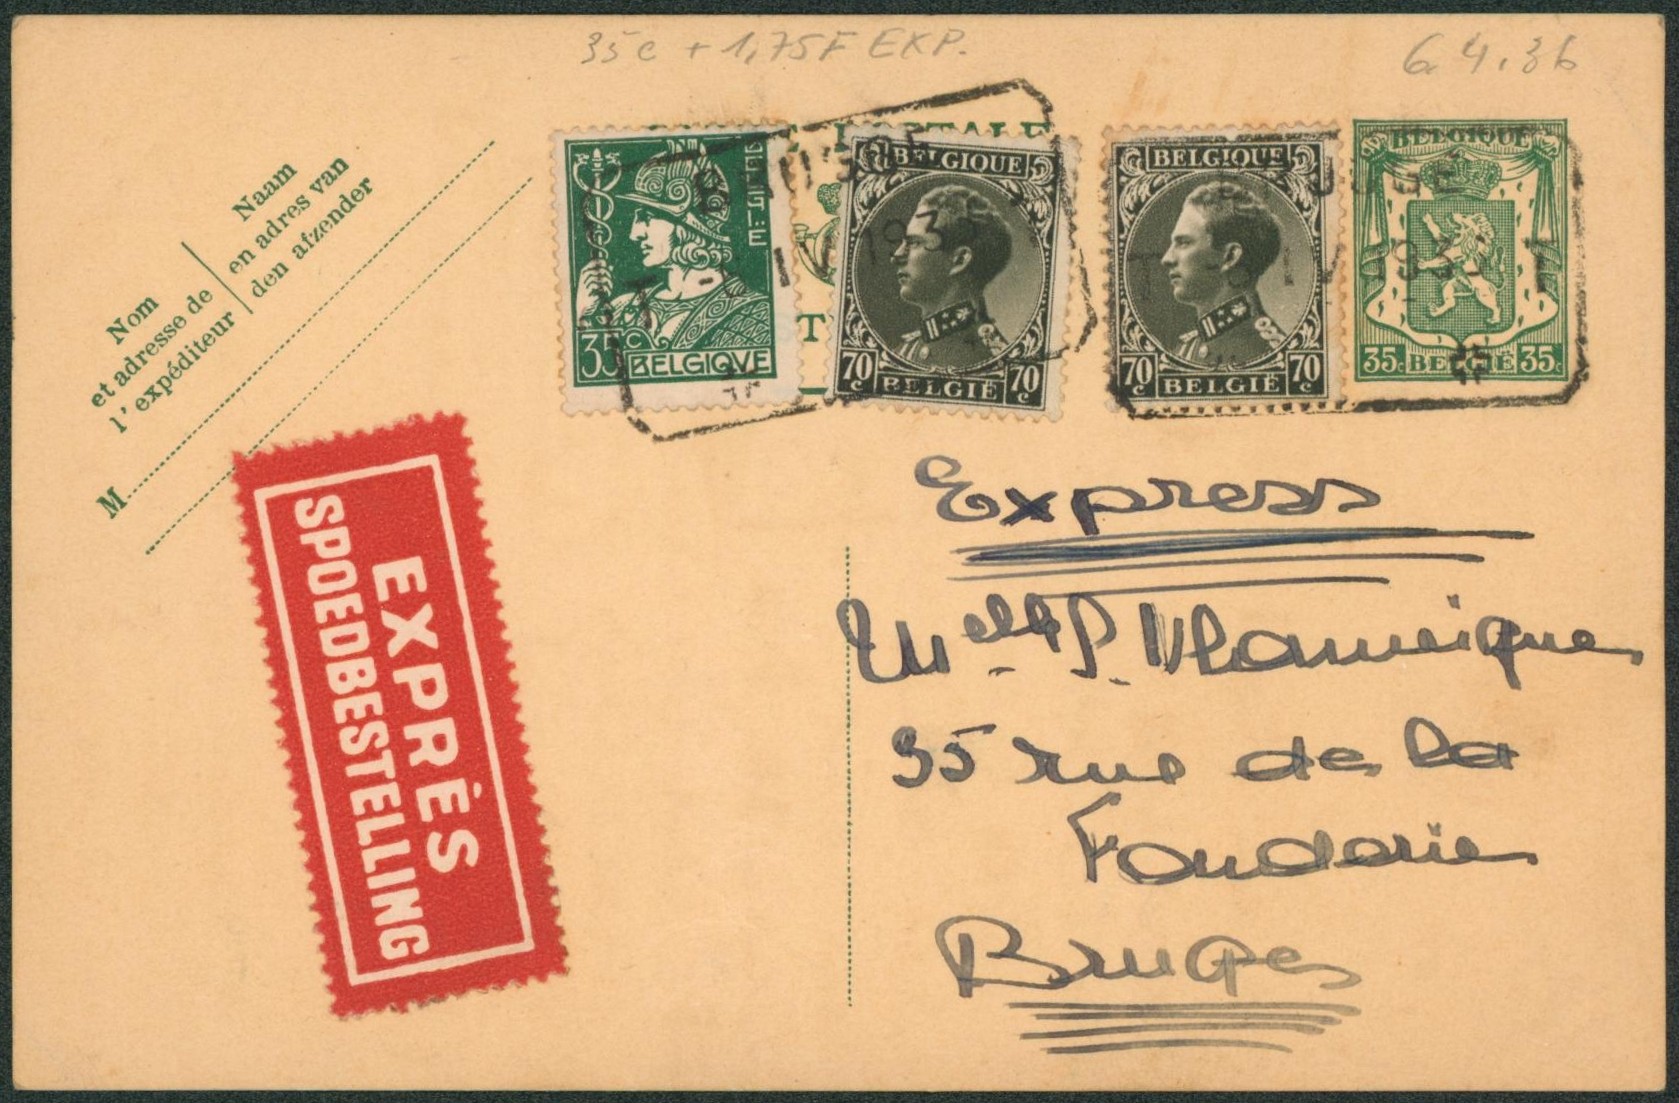 35c + 1,75F EXP.
6.4.36
Naam
en adres van
den afzender
Nom
et adresse de
l'expéditeur
M
BELGIË
35c
BELGIQVE
BELGIQUE
70c BELGIË 70c
BELGIQUE
70c BELGIË 70c
BELGIQUE
35c BELGIË 35c
BRUGGE
EXPRÈS
SPOEDBESTELLING
Express
Melle P.
35 rue de la
Fonderie
Bruges